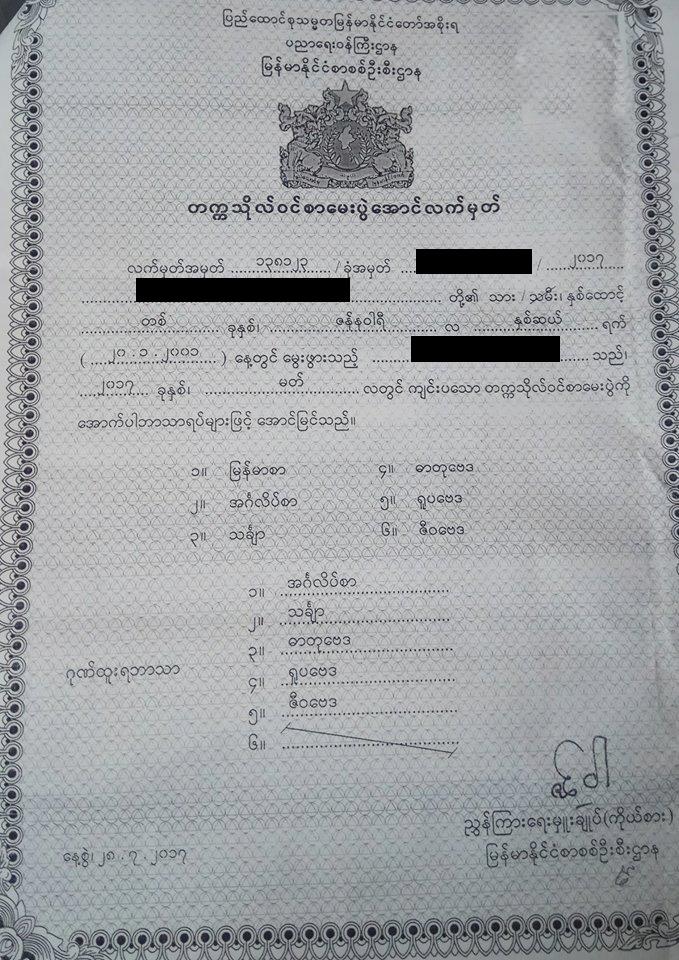 ပြည်ထောင်စုသမ္မတမြန်မာနိုင်ငံတော်အစိုးရ
ပညာရေးဝန်ကြီးဌာန
မြန်မာနိုင်ငံစာစစ်ဦးစီးဌာန
တက္ကသိုလ်ဝင်စာမေးပွဲအောင်လက်မှတ်
လက်မှတ်အမှတ် ၁၃၈၁၂၃ / ခုံအမှတ် / ၂၀၁၇
တို့၏ သား / သမီး၊ နှစ်ထောင့်
တစ် ခုနှစ်၊ ဇန်နဝါရီ လ နှစ်ဆယ် ရက်
( ၂၀ . ၁ . ၂၀၀၁ ) နေ့တွင် မွေးဖွားသည့် သည်၊
၂၀၁၇ ခုနှစ်၊ မတ် လတွင် ကျင်းပသော တက္ကသိုလ်ဝင်စာမေးပွဲကို
အောက်ပါဘာသာရပ်များဖြင့် အောင်မြင်သည်။
၁။ မြန်မာစာ ၄။ ဓာတုဗေဒ
၂။ အင်္ဂလိပ်စာ ၅။ ရူပဗေဒ
၃။ သင်္ချာ ၆။ ဇီဝဗေဒ
၁။ အင်္ဂလိပ်စာ
၂။ သင်္ချာ
၃။ ဓာတုဗေဒ
ဂုဏ်ထူးရဘာသာ ၄။ ရူပဗေဒ
၅။ ဇီဝဗေဒ
၆။
ညွှန်ကြားရေးမှူးချုပ်(ကိုယ်စား)
နေ့စွဲ၊ ၂၈ . ၇ . ၂၀၁၇ မြန်မာနိုင်ငံစာစစ်ဦးစီးဌာန